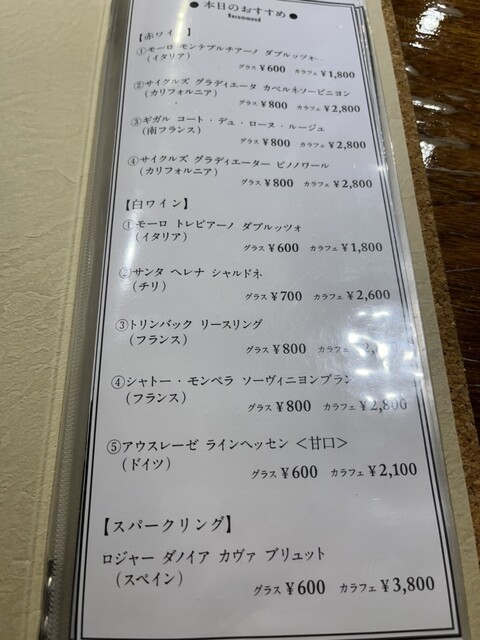 ● 本日のおすすめ ●
Recommend
【赤ワイン】
①モーロ モンテプルチアーノ ダブルッツォ
(イタリア)
グラス ¥600 カラフェ ¥1,800
②サイクルズ グラディエータ カベルネソービニヨン
(カリフォルニア)
グラス ¥800 カラフェ ¥2,800
③ギガル コート・デュ・ローヌ・ルージュ
(南フランス)
グラス ¥800 カラフェ ¥2,800
④サイクルズ グラディエーター ピノノワール
(カリフォルニア)
グラス ¥800 カラフェ ¥2,800
【白ワイン】
①モーロ トレビアーノ ダブルッツォ
(イタリア)
グラス ¥600 カラフェ ¥1,800
②サンタ ヘレナ シャルドネ
(チリ)
グラス ¥700 カラフェ ¥2,600
③トリンバック リースリング
(フランス)
グラス ¥800 カラフェ
④シャトー・モンペラ ソーヴィニヨンブラン
(フランス)
グラス ¥800 カラフェ ¥2,800
⑤アウスレーゼ ラインヘッセン <甘口>
(ドイツ)
グラス ¥600 カラフェ ¥2,100
【スパークリング】
ロジャー ダノイア カヴァ ブリュット
(スペイン)
グラス ¥600 カラフェ ¥3,800